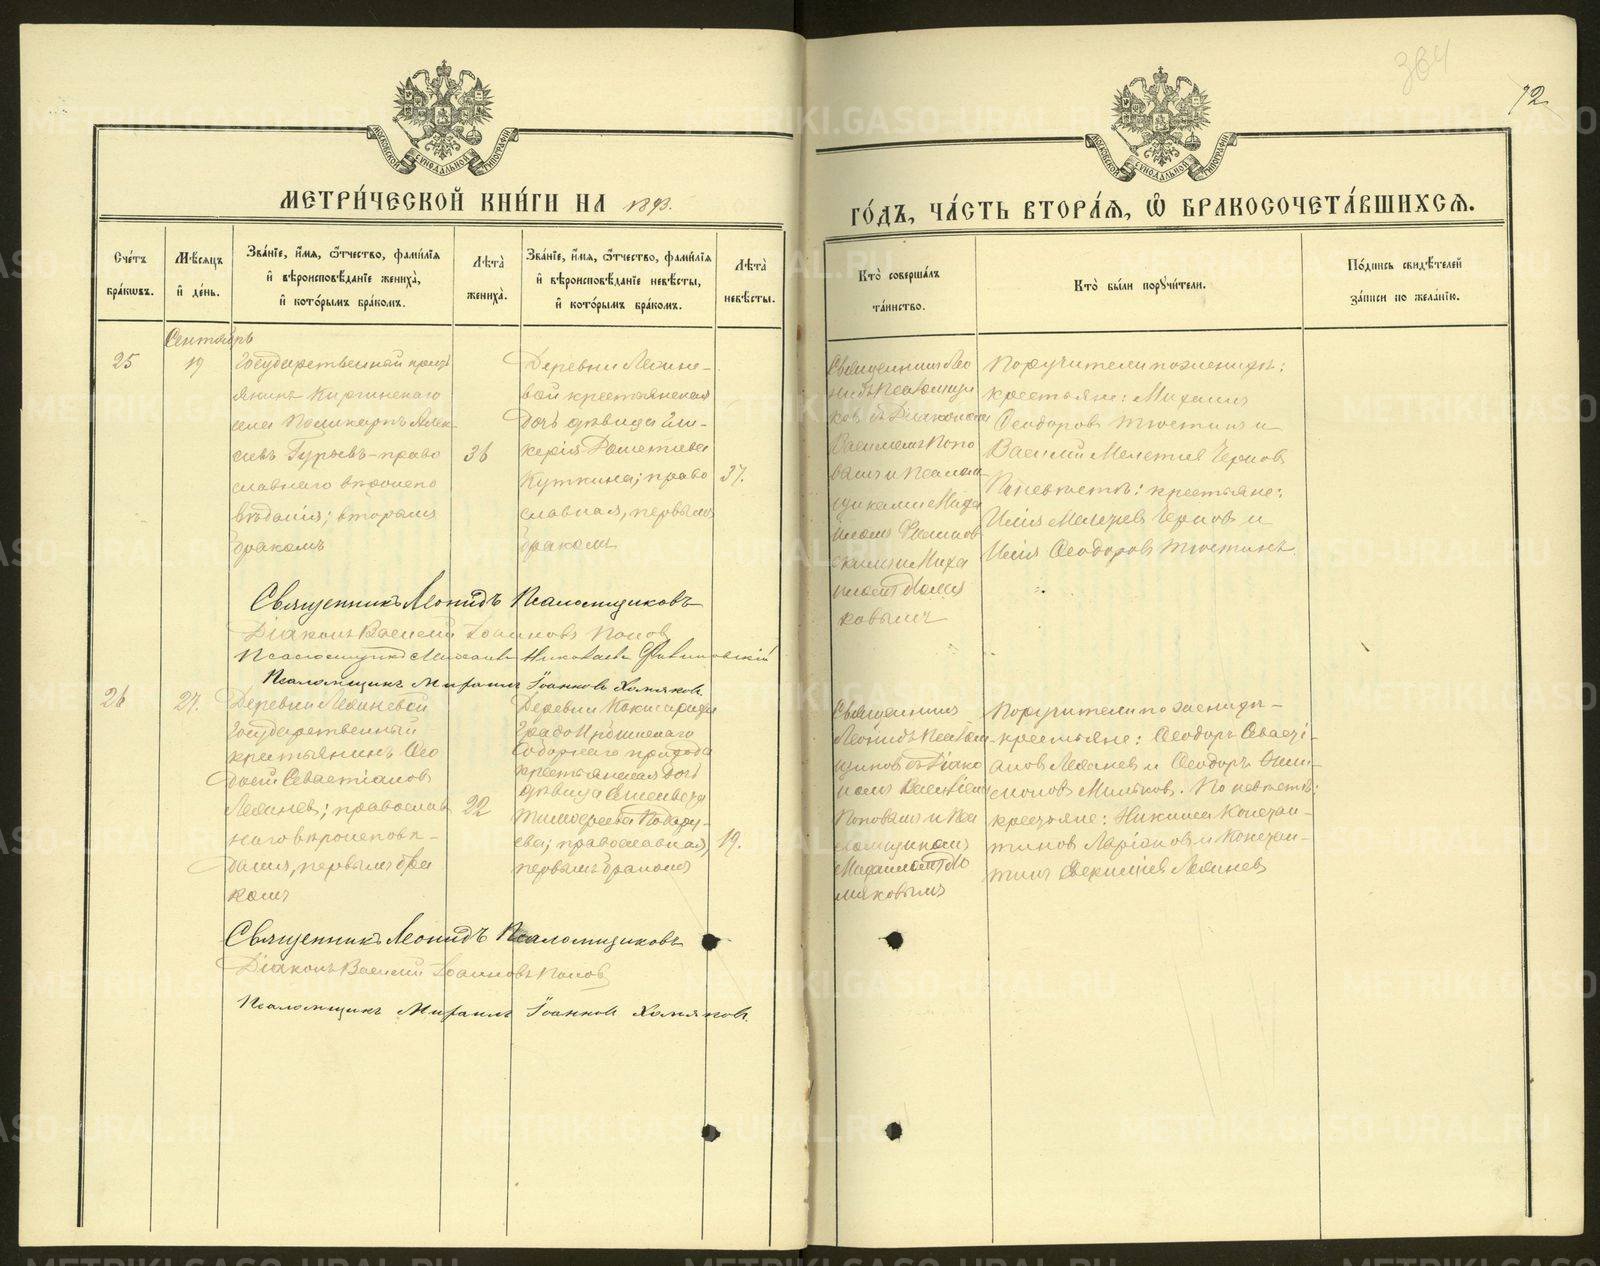 364
72
МОСКОВСКОЙ СѴНОДАЛЬНОЙ ТИПОГРАФІИ
МОСКОВСКОЙ СѴНОДАЛЬНОЙ ТИПОГРАФІИ
МЕТРИ́ЧЕСКОЙ КНИ́ГИ НА 1893.
ГО́ДЪ, ЧА́СТЬ ВТОРА́Я, Ѽ БРАКОСОЧЕТА́ВШИХСЯ.
Сче́тъ бра́кѡвъ.
Мѣ́сяцъ и҆ де́нь.
Зва́нїе, и҆́мя, ѻ҆́тчество, фами́лїя и҆ вѣроисповѣ́данїе жениха̀, и҆ кото́рымъ бра́комъ.
Лѣта̀ жениха̀.
Зва́нїе, и҆́мя, ѻ҆́тчество, фами́лїя и҆ вѣроисповѣ́данїе невѣ́сты, и҆ кото́рымъ бра́комъ.
Лѣта̀ невѣ́сты.
Кто̀ соверша́лъ та́инство.
Кто̀ бы́ли поручи́тели.
По́дпись свидѣ́телей за́писи по жела́нїю.
Сентябрь
25
19
Государственный крест
янинъ Киргинскаго
села Поликарпъ Алек
сѣевъ Гурьевъ - право
славнаго вѣроиспо
вѣданія; вторымъ
бракомъ
36
Деревни Ляпине-
вой крестьянская
дочь дѣвица Гли-
керія
Куткина; право
славная, первымъ
бракомъ
37.
Священникъ Лео
нидъ Псаломщи
ковъ съ Діакономъ
Василіемъ Попо
вымъ и псалом
щиками Миха
иломъ
скимъ и Миха
иломъ Хомя
ковымъ
Поручители по женихѣ:
крестьяне: Михаилъ
Ѳеодоровъ и
Василій Мелетіевъ Черновъ
По невѣстѣ: крестьяне:
Илія Черновъ и
Илія Ѳеодоровъ
Священникъ Леонидъ Псаломщиковъ
Діаконъ Василій Іоанновъ Поповъ
Псаломщикъ Михаилъ Николаевъ
Псаломщикъ Михаилъ Іоанновъ Хомяковъ.
26
27.
Деревни Ляпиневой
Государственный
крестьянинъ Ѳео
Севастіановъ
Ляпиневъ; православ
наго вѣроисповѣ-
данія, первымъ бра
комъ
22
Деревни
Градо-Ирбитскаго
Соборнаго прихода
крестьянская дочь
дѣвица Елисавета
Тимоѳеева
православная,
первымъ бракомъ
19.
Священникъ
Леонидъ Псалом
щиковъ съ Діако
номъ Василіемъ
Поповымъ и Пса
ломщикомъ
Михаиломъ Хо
мяковымъ
Поручители по женихѣ -
крестьяне: Ѳеодоръ Севасті-
ановъ Ляпиневъ и Ѳеодоръ
По невѣстѣ:
крестьяне: Никита Констан-
тиновъ Ларіоновъ и Констан-
тинъ Ляпиневъ
Священникъ Леонидъ Псаломщиковъ
Діаконъ Василій Іоанновъ Поповъ
Псаломщикъ Михаилъ Іоанновъ Хомяковъ.
METRIKI.GASO-URAL.RU